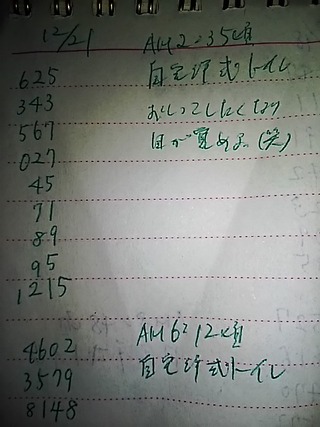 12/21 AM2:35頃
625 自宅洋式トイレ
343 おしっこしたくなり
567 目が覚める(笑)
027
45
71
89
95
1215
AM6:12頃
4602 自宅洋式トイレ
3579
8148